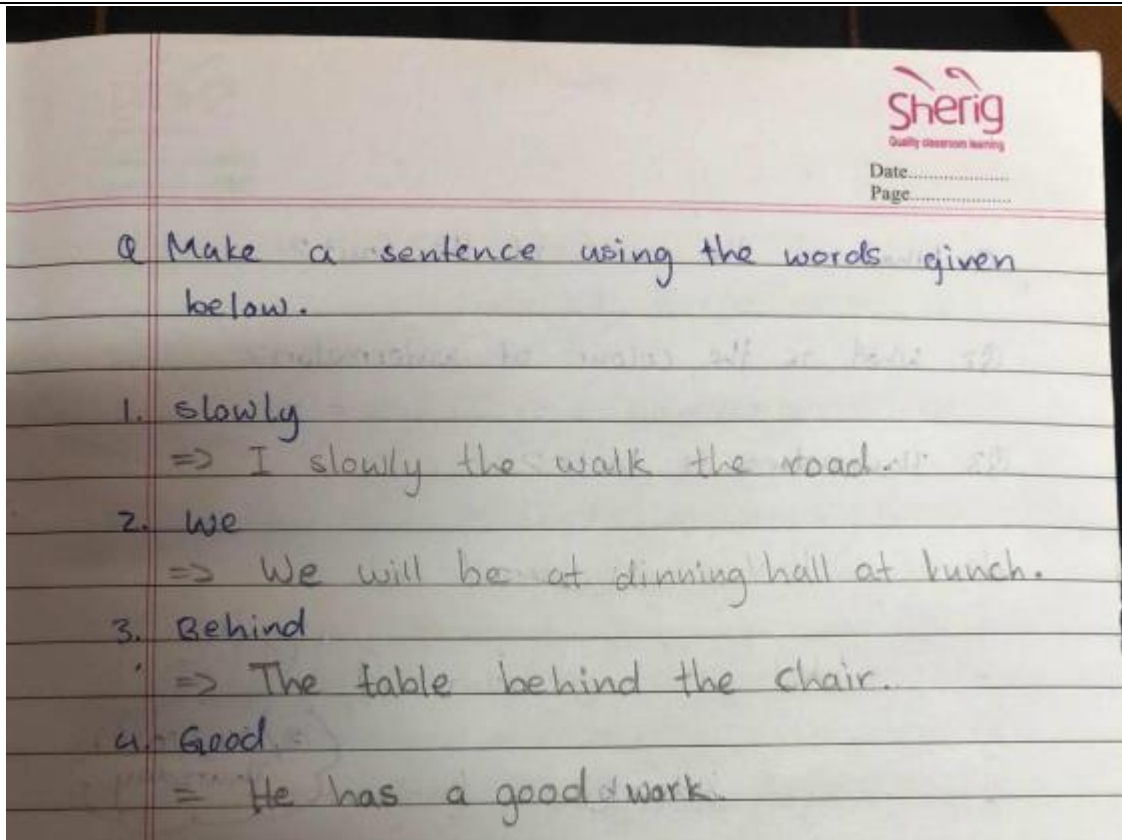 Sherig
Quality classroom learning
Date....................
Page....................
Q Make a sentence using the words given
below.
1. slowly
=> I slowly the walk the road.
2. We
=> We will be at dinning hall at lunch.
3. Behind
=> The table behind the chair.
4. Good
= He has a good work.